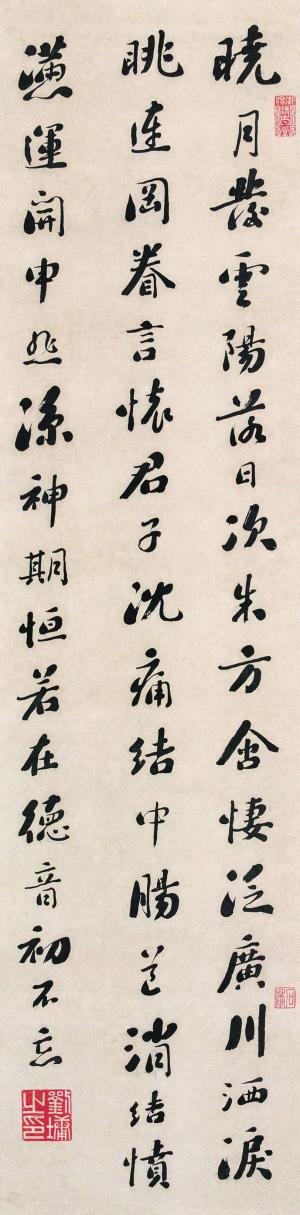 曉月發雲陽落日次朱方含悽泛廣川洒淚
眺連岡眷言懷君子沈痛結中腸道消結憤
懣運開申悲涼神期恒若在德音初不忘
劉墉之印